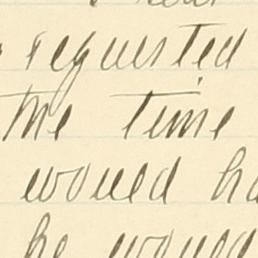 requested
the time
would ha
he would